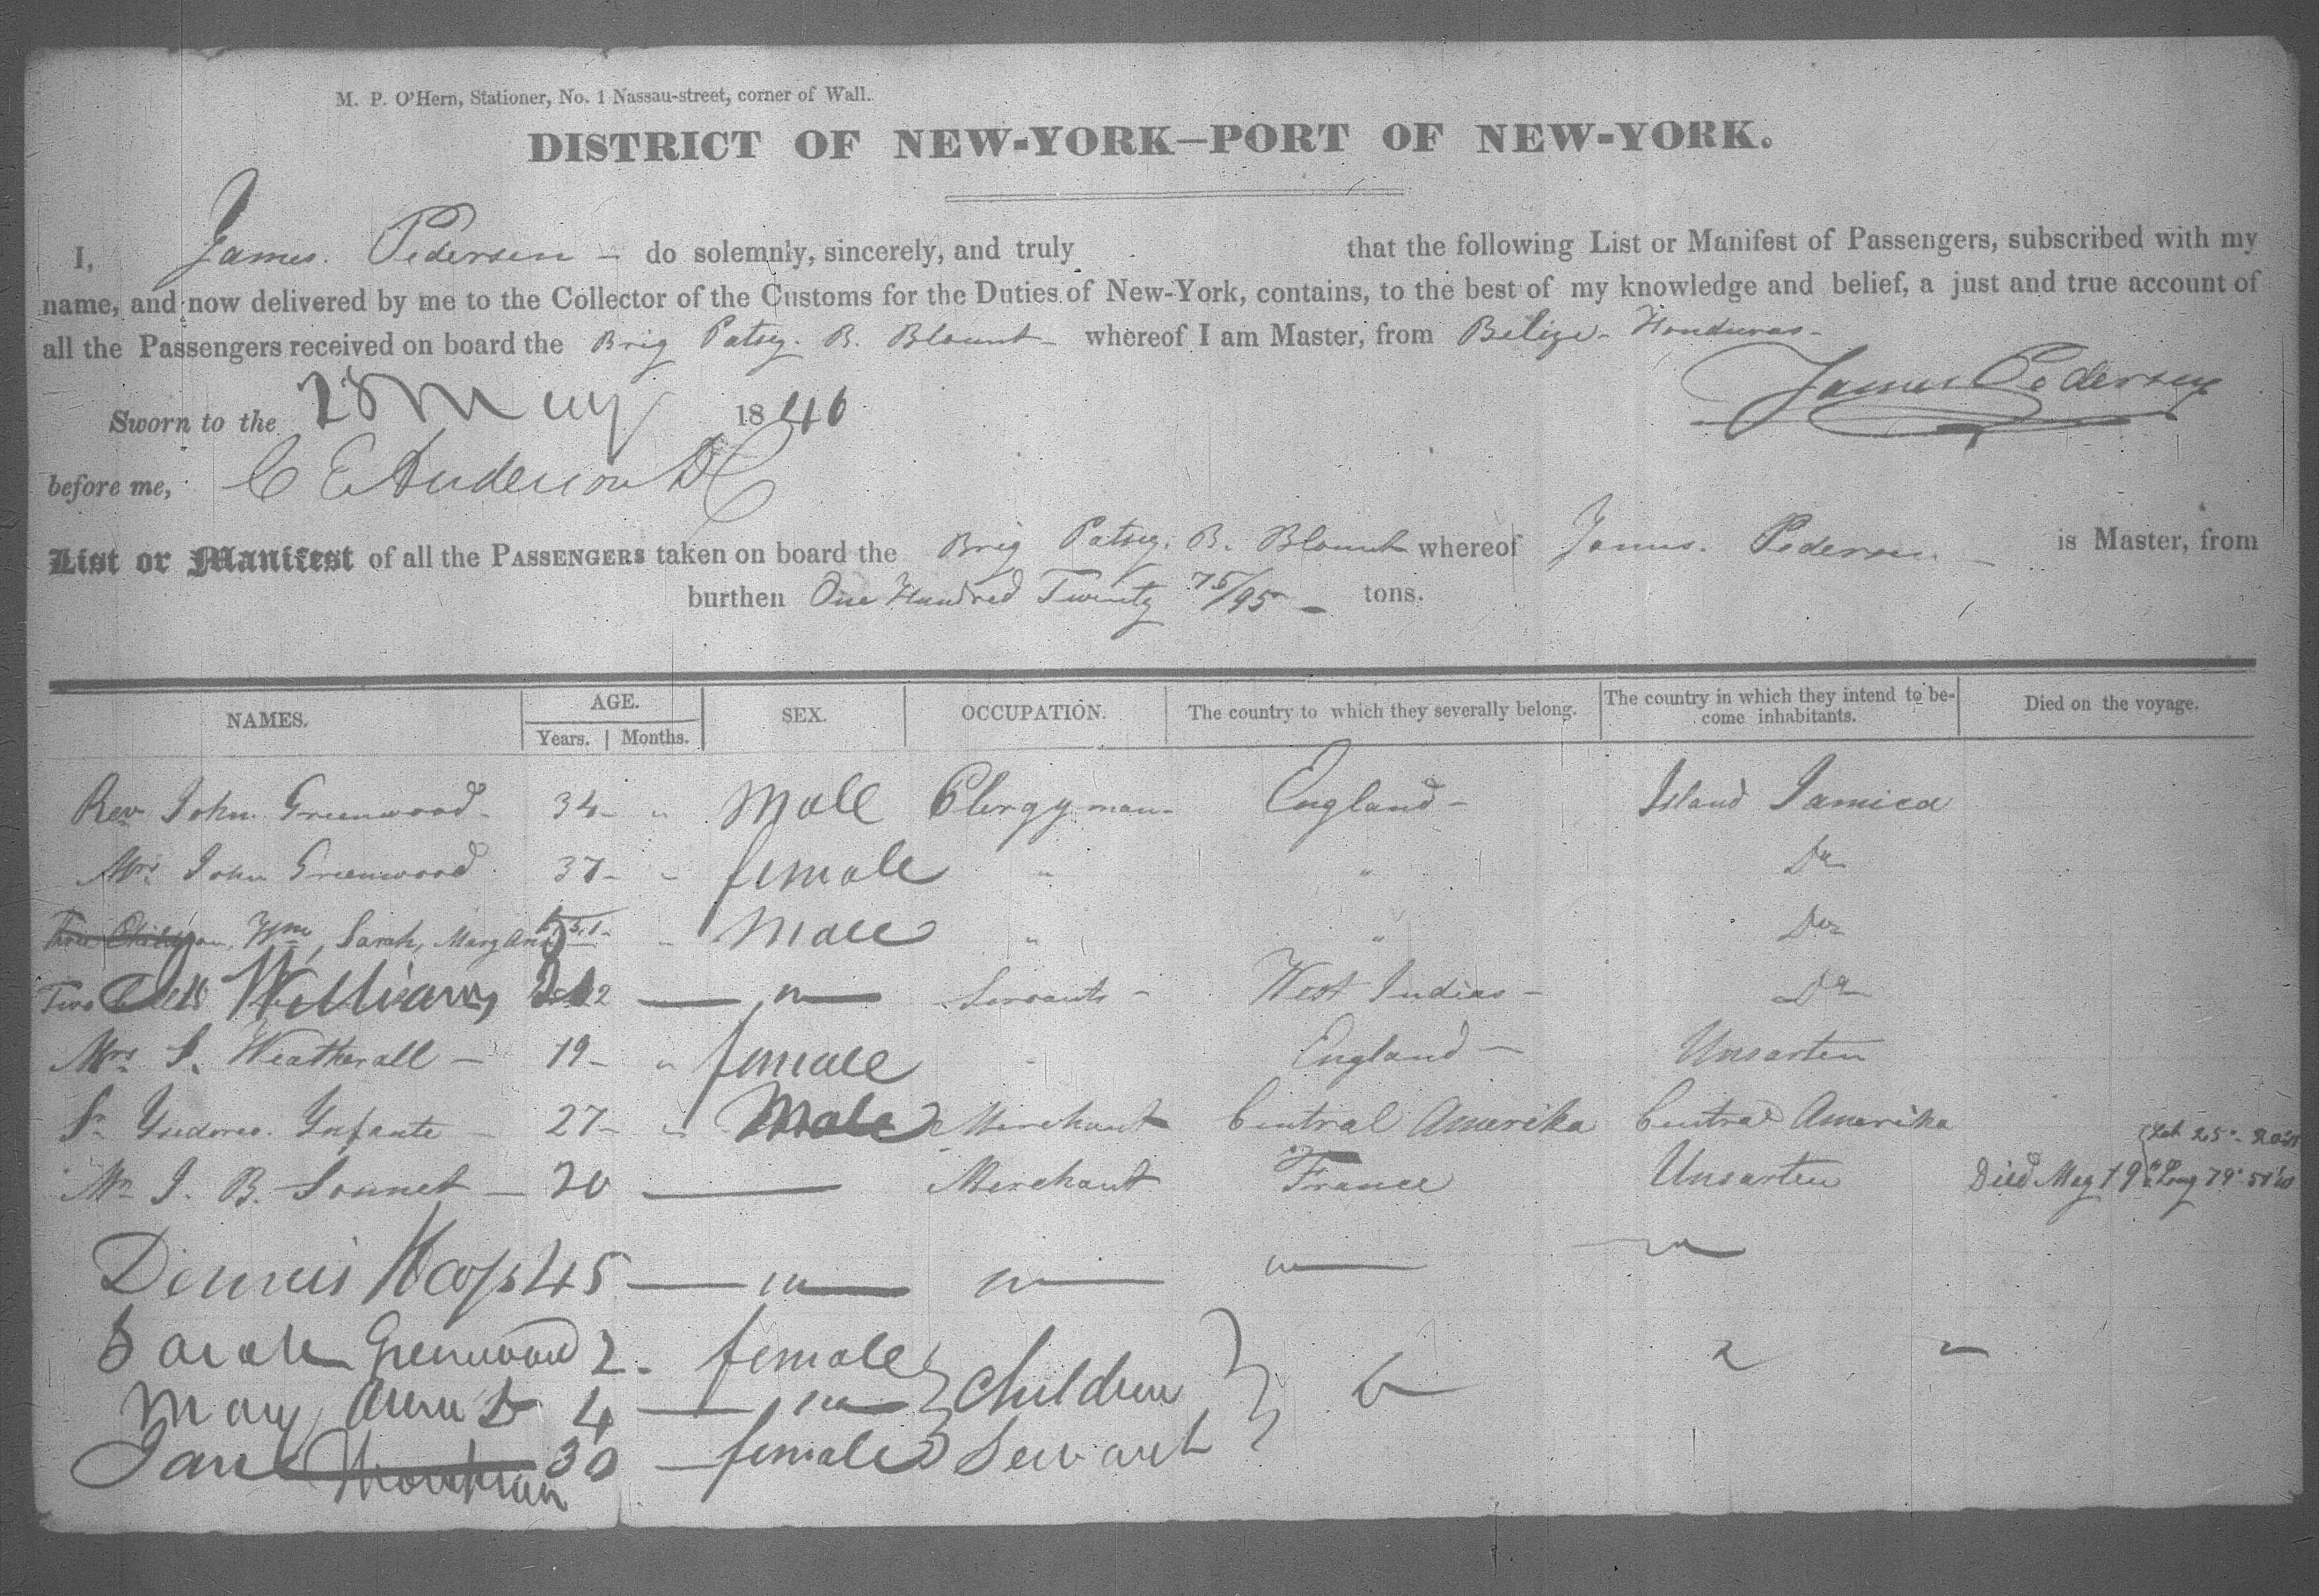 M. P. O'Hern, Stationer, No. 1 Nassau-street, corner of Wall.
DISTRICT OF NEW-YORK—PORT OF NEW-YORK.
I, James. Pedersen – do solemnly, sincerely, and truly that the following List or Manifest of Passengers, subscribed with my
name, and now delivered by me to the Collector of the Customs for the Duties of New-York, contains, to the best of my knowledge and belief, a just and true account of
all the Passengers received on board the Brig Patsey. B. Blount – whereof I am Master, from Belize – Honduras –
James Pedersen
Sworn to the 28 May 1846
before me, C E Anderson DC
List or Manifest of all the PASSENGERS taken on board the Brig Patsey. B. Blount whereof James. Pedersen – is Master, from
burthen One Hundred Twenty 75/95 – tons.
NAMES. AGE. SEX. OCCUPATION. The country to which they severally belong. The country in which they intend to be- Died on the voyage.
Years. Months. come inhabitants.
Rev John Greenwood – 34 – " Male Clergyman – England – Island Jamica
Mrs John Greenwood 37 – " female " " Do
Three Children, Wm, Sarah, Mary Ann 5.3.1 – " Male " " Do
Two William, 12 — " — Servants – West Indias – Do
Mrs S. Weatherall – 19 – " female England – Unsarten
Sr Ysedoreo. Ynfante – 27 – " Male Merchant Central Amerika Central Amerika
Mr J. B. Sonnet – 20 — Merchant France Unsarten Died May 19th Lat 25° Long 79°
Dennis 45 — " — " — " — "
Sarah Greenwood 2 – female
Mary Ann Do 4 — " — Children
Jane 30 – female Servant